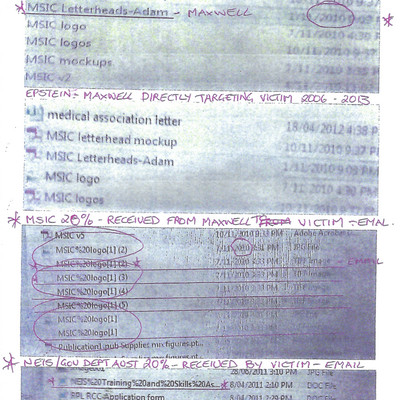 * MSIC Letterheads-Adam - MAXWELL 7/11/2010 *
MSIC logo 7/11/2010 4:30 P
MSIC logos 10/11/2010 9:37
MSIC mockups
MSIC v2
EPSTEIN - MAXWELL DIRECTLY TARGETING VICTIM 2006 - 2013
medical association letter 18/04/2012 4:38 P
MSIC letterhead mockup 10/11/2010 9:37 P
MSIC Letterheads-Adam
MSIC logo 7/11/2010 4:30 P
MSIC logos
* MSIC 20% - RECEIVED FROM MAXWELL TO VICTIM - EMAL.
MSIC v5 10/11/2010 9:33 PM Adobe Acrobat
MSIC%20logo[1] (2) 7/11/2010 JPG File
MSIC%20logo[1] (2) 7/11/2010 4:33 PM TIFF Image - EMAIL
MSIC%20logo[1] (3) 7/11/2010 4:33 PM
MSIC%20logo[1] (4) 7/11/2010 4:33 PM
MSIC%20logo[1] (5)
MSIC%20logo[1]
MSIC%20logo[1]
Publication1.pub Supplies mix figures pt...
* NEIS/GOV DEPT AUST 20% - RECEIVED BY VICTIM - EMAIL
28/06/2011 3:10 PM JPG File
* NEIS%20Training%20and%20Skills%20As... 8/04/2011 2:10 PM DOC File
RPL RCC-Application form 8/04/2011 2:29 PM DOC File